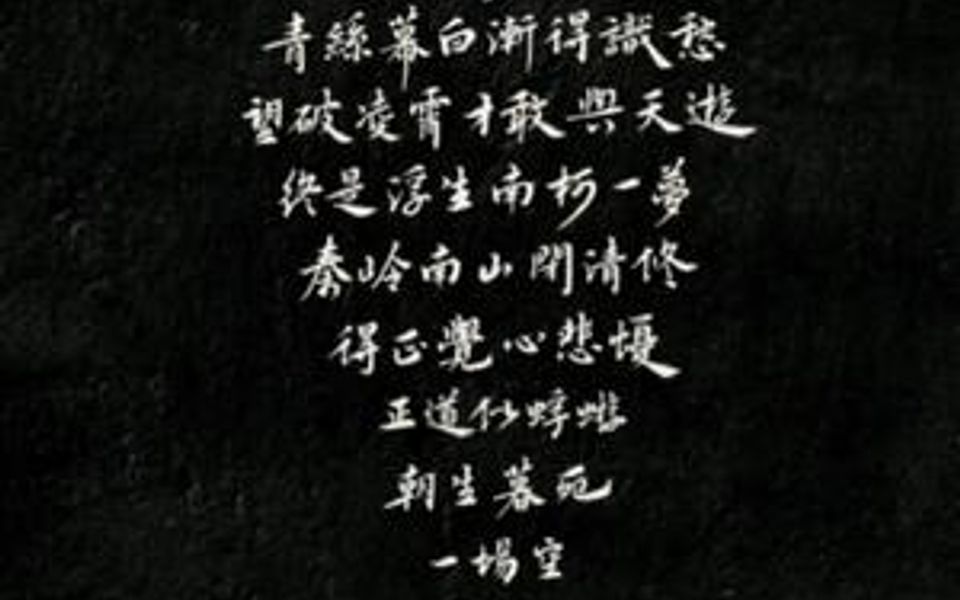 青絲幕白漸得識愁
望破凌霄才敢與天遊
終是浮生南柯一夢
秦岭南山閉清修
得正覺心悲憂
正道似蜉蝣
朝生暮死
一場空